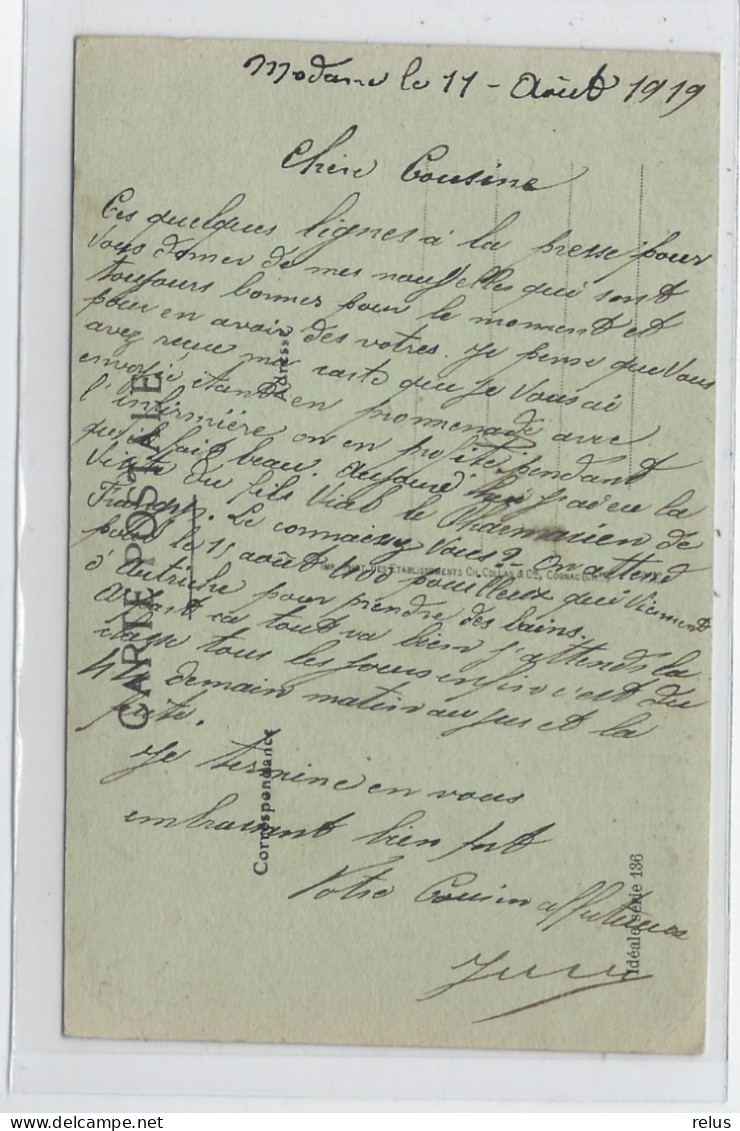 Modane le 11 - Août 1919
Chère Cousine
Ces quelques lignes à la presse pour
vous donner de mes nouvelles qui sont
toujours bonnes pour le moment et
pour en avoir des votres. Je pense que vous
avez reçue ma carte que je vous ai
envoyée étant en promenade avec
l'infirmière on en profite pendant
qu'il fait beau. Aujourd'hui j'ai eu la
visite du fils Vial le Pharmacien de
Le connaissez vous? on attend
pour le 15 août 400 pouilleux qui viennent
d'Autriche pour prendre des bains.
Apart ça tout va bien j'attends la
classe tous les jours enfin c'est du
44 demain matin au jus et la
fuite.
Je termine en vous
embrassant bien fort
Votre Cousin affectueux
CARTE POSTALE
Adresse
Correspondance
DES ETABLISSEMENTS CH. COLLAS & Co, COGNAC
Idéale série 136
relus